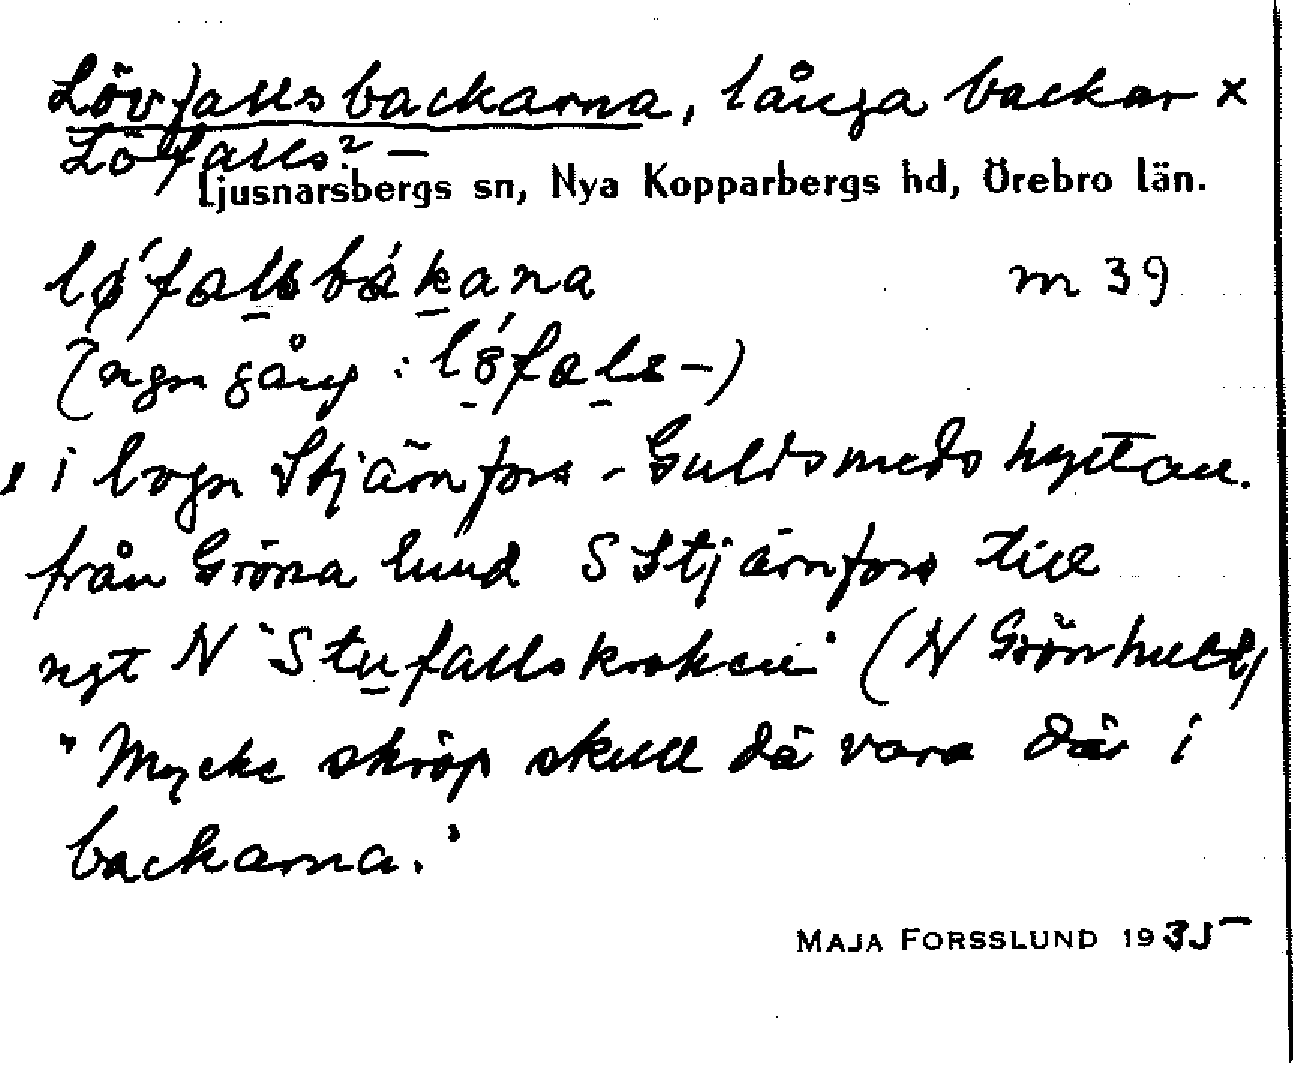 Lövfallsbackarna, långa backar x
Löfalls? –
Ljusnarsbergs sn, Nya Kopparbergs hd, Örebro län.
lǿfalsbákana m 39
(ngn gång: lófals–)
x i lvgn Stjärnfors - Guldsmedshyttan.
från Gröna lund S Stjärnfors till
ngt N "Stufallskroken" (N Grönhult)
"Mycke skröp skull dä vara där i
backarna."
MAJA FORSSLUND 1935